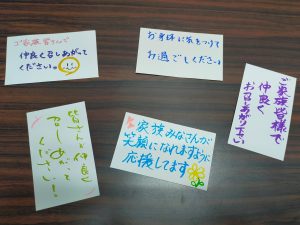 ご家族皆さんで
仲良く召しあがって
ください。
お身体に気をつけて
お過ごしください
ご家族皆様で
仲良く
お召しあがり下さい
皆さんで仲良く
召しあがって
ください!
家族みなさんが
笑顔になれますように
応援してます